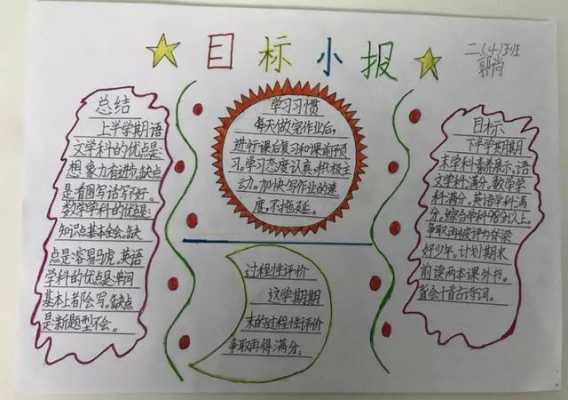 目标小报
二(4)班
总结
上半学期语
文学科的优点是:
想象力有进步,缺点
是看图写话不好。
数学学科的优点是:
知识点基本会,缺
点是容易马虎,英语
学科的优点是:单词
基本上都会写,缺点
是新题型不会。
学习习惯
每天做完作业后,
进行课后复习和课前预
习,学习态度认真、积极主
动。加快写作业的速
度,不拖延。
过程性评价
这学期期
末的过程性评价
争取再得满分。
目标
下半学期期
末学科素养展示,语
文学科满分,数学学
科满分,英语学科满
分。综合学科98分以上。
争取再被评为
好少年,计划期末
前读两本课外书。
首古诗词。